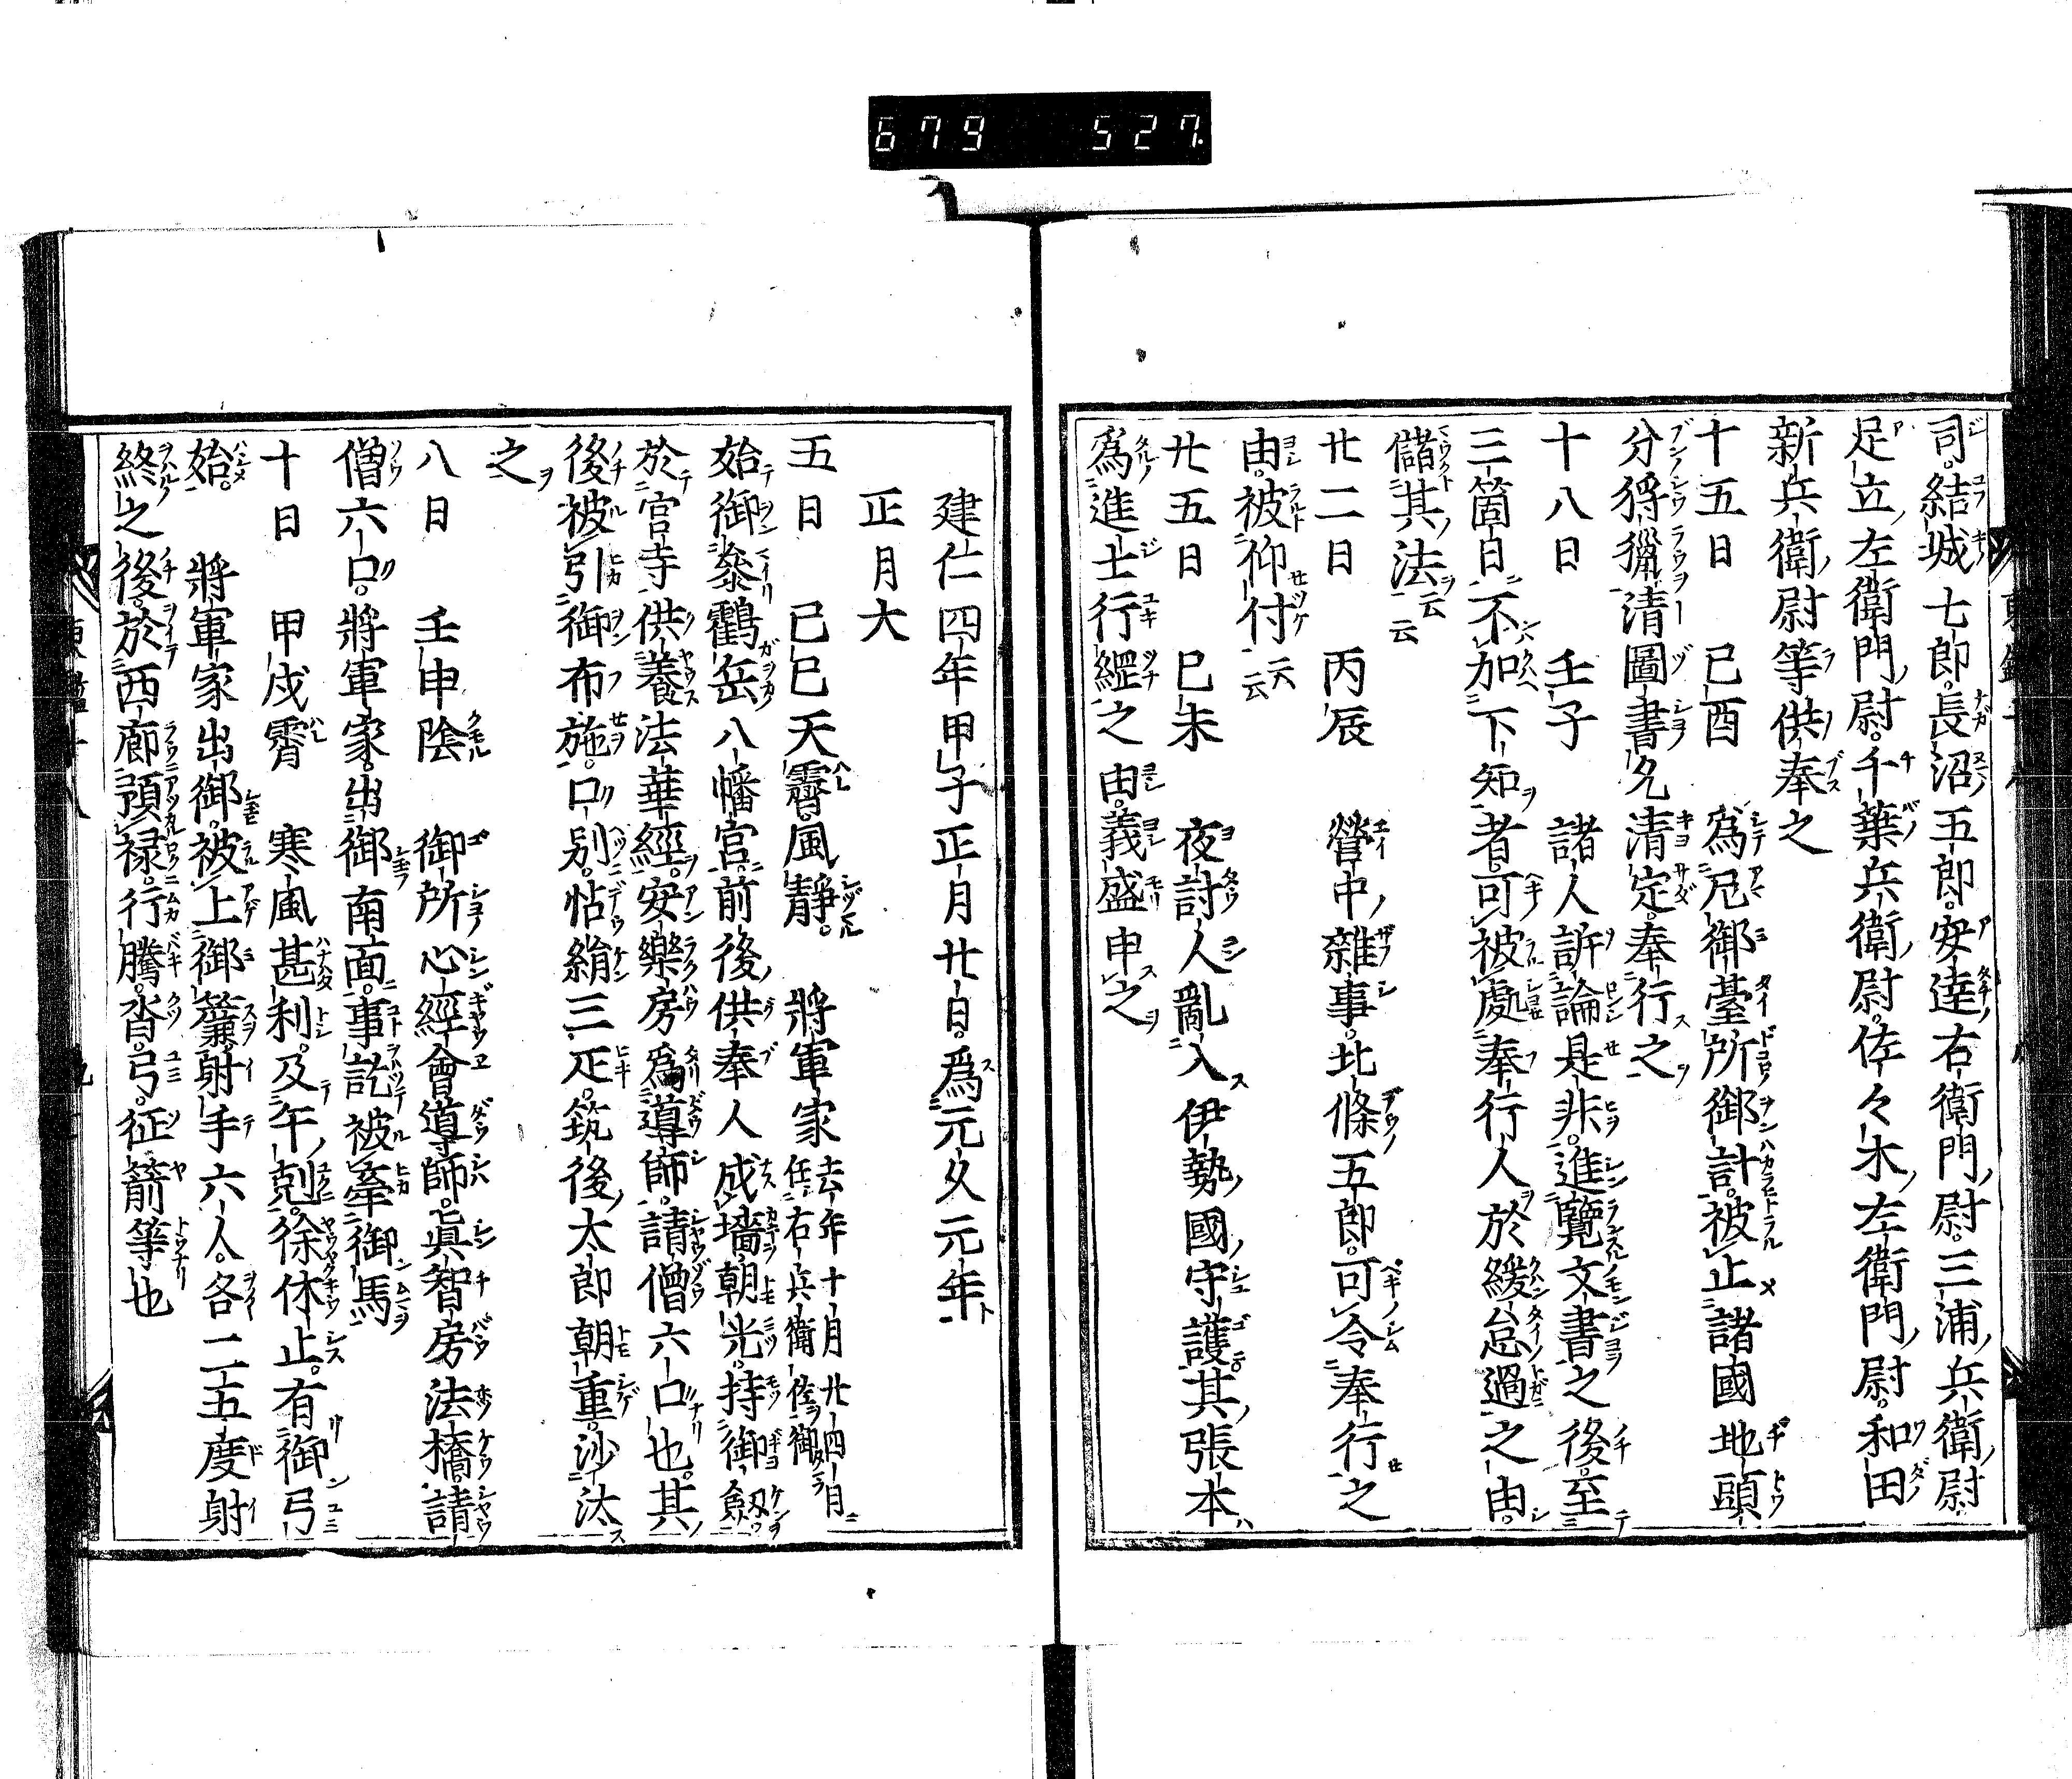 679 527
司。結城七郎。長沼五郎。安達右衛門尉。三浦兵衛尉。
足立左衛門尉。千葉兵衛尉。佐々木左衛門尉。和田
新兵衛尉等供奉之
十五日 己酉 爲尼御臺所御計。被止諸國地頭
分狩獵。清圖書允清定。奉行之
十八日 壬子 諸人訴論是非。進覽文書之後。至
三箇日不加下知者。可被處奉行人於緩怠過之由。
儲其法云云
廿二日 丙辰 營中雜事。北條五郎。可令奉行之
由。被仰付云云
廿五日 巳未 夜討人亂入伊勢國守護其張本
爲進士行綱之由。義盛申之
建仁四年甲子正月廿日。爲元久元年
正月大
五日 己巳天霽。風靜。 將軍家去年十月廿四日任右兵衛佐御
始御參鶴岳八幡宮。前後供奉人成墻。朝光。持御劔。
於宮寺供養法華經。安樂房爲導師。請僧六口也。其
後被引御布施。口別。帖絹三疋。筑後太郎朝重。沙汰
之
八日 壬申陰 御所心經會導師。眞智房法橋。請
僧六口。將軍家。出御南面。事訖被牽御馬
十日 甲戌霽 寒風甚利。及午剋。徐休止。有御弓
始。 將軍家出御。被上御簾。射手六人。各二五度射
終之後。於西廊預禄。行騰。沓。弓。征箭等也